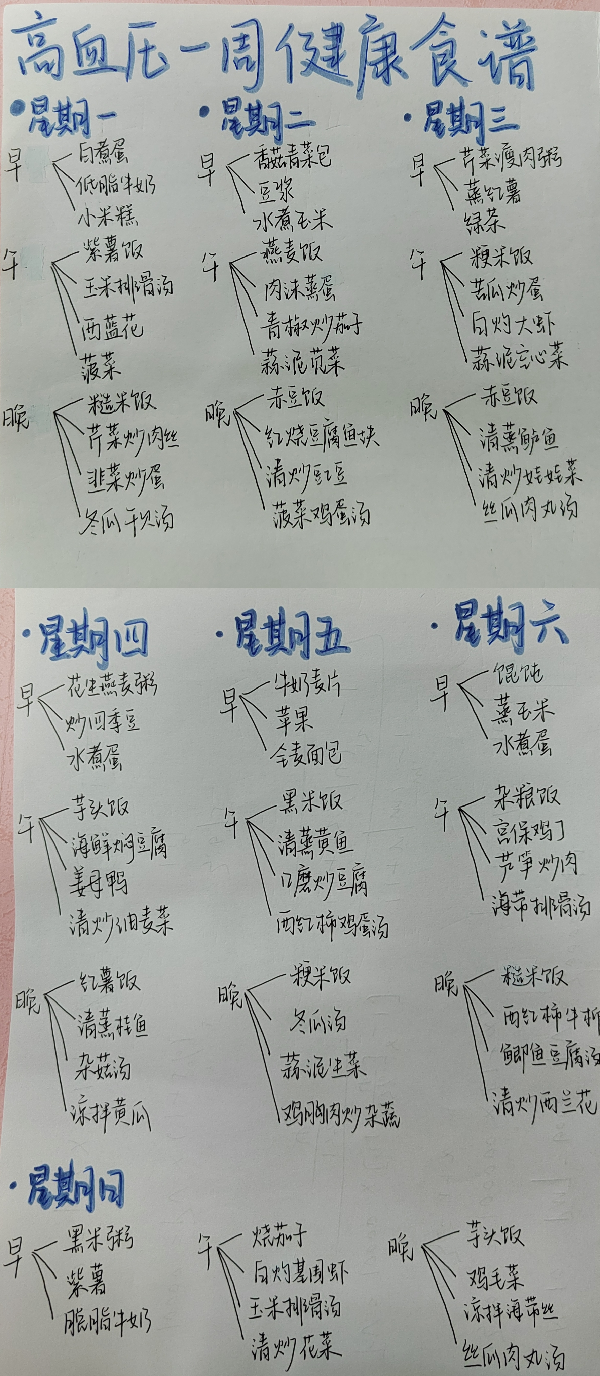 高血压一周健康食谱
星期一
早
白煮蛋
低脂牛奶
小米糕
午
紫薯饭
玉米排骨汤
西蓝花
菠菜
晚
糙米饭
芹菜炒肉丝
韭菜炒蛋
冬瓜干贝汤
星期二
早
香菇青菜包
豆浆
水煮玉米
午
燕麦饭
肉沫蒸蛋
青椒炒茄子
蒜泥苋菜
晚
赤豆饭
红烧豆腐鱼块
清炒豇豆
菠菜鸡蛋汤
星期三
早
芹菜瘦肉粥
蒸红薯
绿茶
午
粳米饭
苦瓜炒蛋
白灼大虾
蒜泥空心菜
晚
赤豆饭
清蒸鲈鱼
清炒娃娃菜
丝瓜肉丸汤
星期四
早
花生燕麦粥
炒四季豆
水煮蛋
午
芋头饭
海鲜焖豆腐
姜母鸭
清炒油麦菜
晚
红薯饭
清蒸桂鱼
杂菇汤
凉拌黄瓜
星期五
早
牛奶麦片
苹果
全麦面包
午
黑米饭
清蒸黄鱼
口磨炒豆腐
西红柿鸡蛋汤
晚
粳米饭
冬瓜汤
蒜泥生菜
鸡胸肉炒杂蔬
星期六
早
馄饨
蒸玉米
水煮蛋
午
杂粮饭
宫保鸡丁
芦笋炒肉
海带排骨汤
晚
糙米饭
西红柿牛
鲫鱼豆腐汤
清炒西兰花
星期日
早
黑米粥
紫薯
脱脂牛奶
午
烧茄子
白灼基围虾
玉米排骨汤
清炒花菜
晚
芋头饭
鸡毛菜
凉拌海带丝
丝瓜肉丸汤